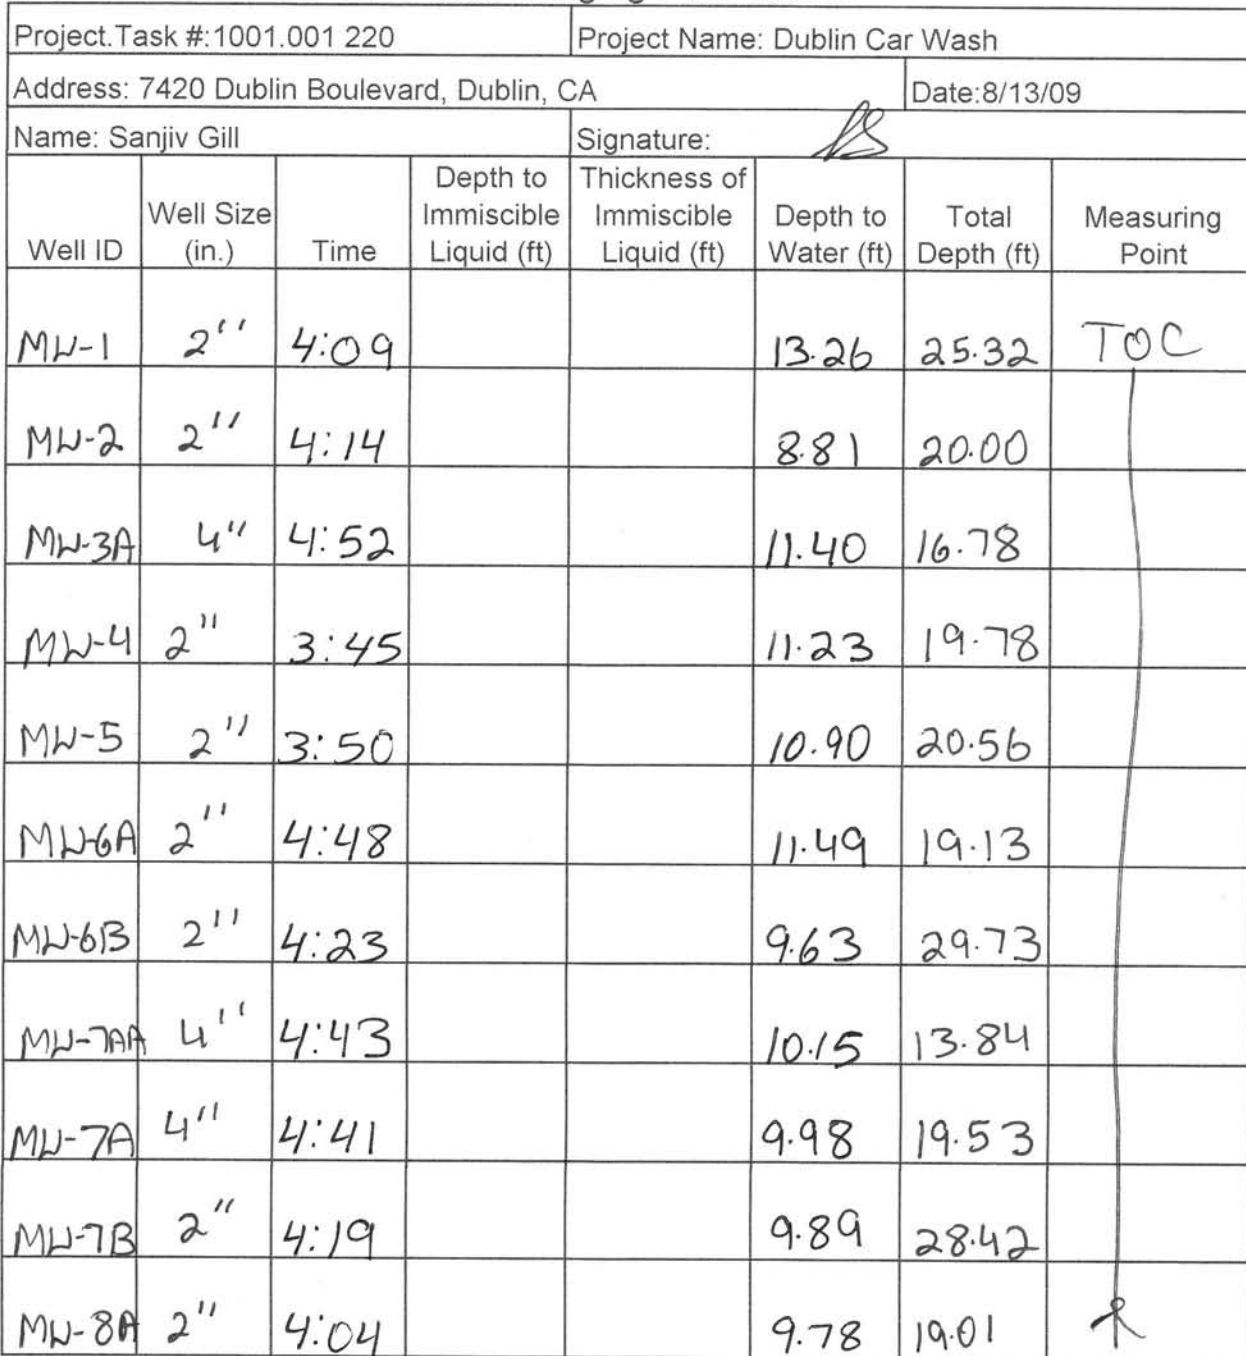 Project.Task #:1001.001 220 Project Name: Dublin Car Wash
Address: 7420 Dublin Boulevard, Dublin, CA Date:8/13/09
Name: Sanjiv Gill Signature:
Well ID Well Size (in.) Time Depth to Immiscible Liquid (ft) Thickness of Immiscible Liquid (ft) Depth to Water (ft) Total Depth (ft) Measuring Point
MW-1 2'' 4:09 13.26 25.32 TOC
MW-2 2'' 4:14 8.81 20.00
MW-3A 4'' 4:52 11.40 16.78
MW-4 2'' 3:45 11.23 19.78
MW-5 2'' 3:50 10.90 20.56
MW-6A 2'' 4:48 11.49 19.13
MW-6B 2'' 4:23 9.63 29.73
MW-7AA 4'' 4:43 10.15 13.84
MW-7A 4'' 4:41 9.98 19.53
MW-7B 2'' 4:19 9.89 28.42
MW-8A 2'' 4:04 9.78 19.01